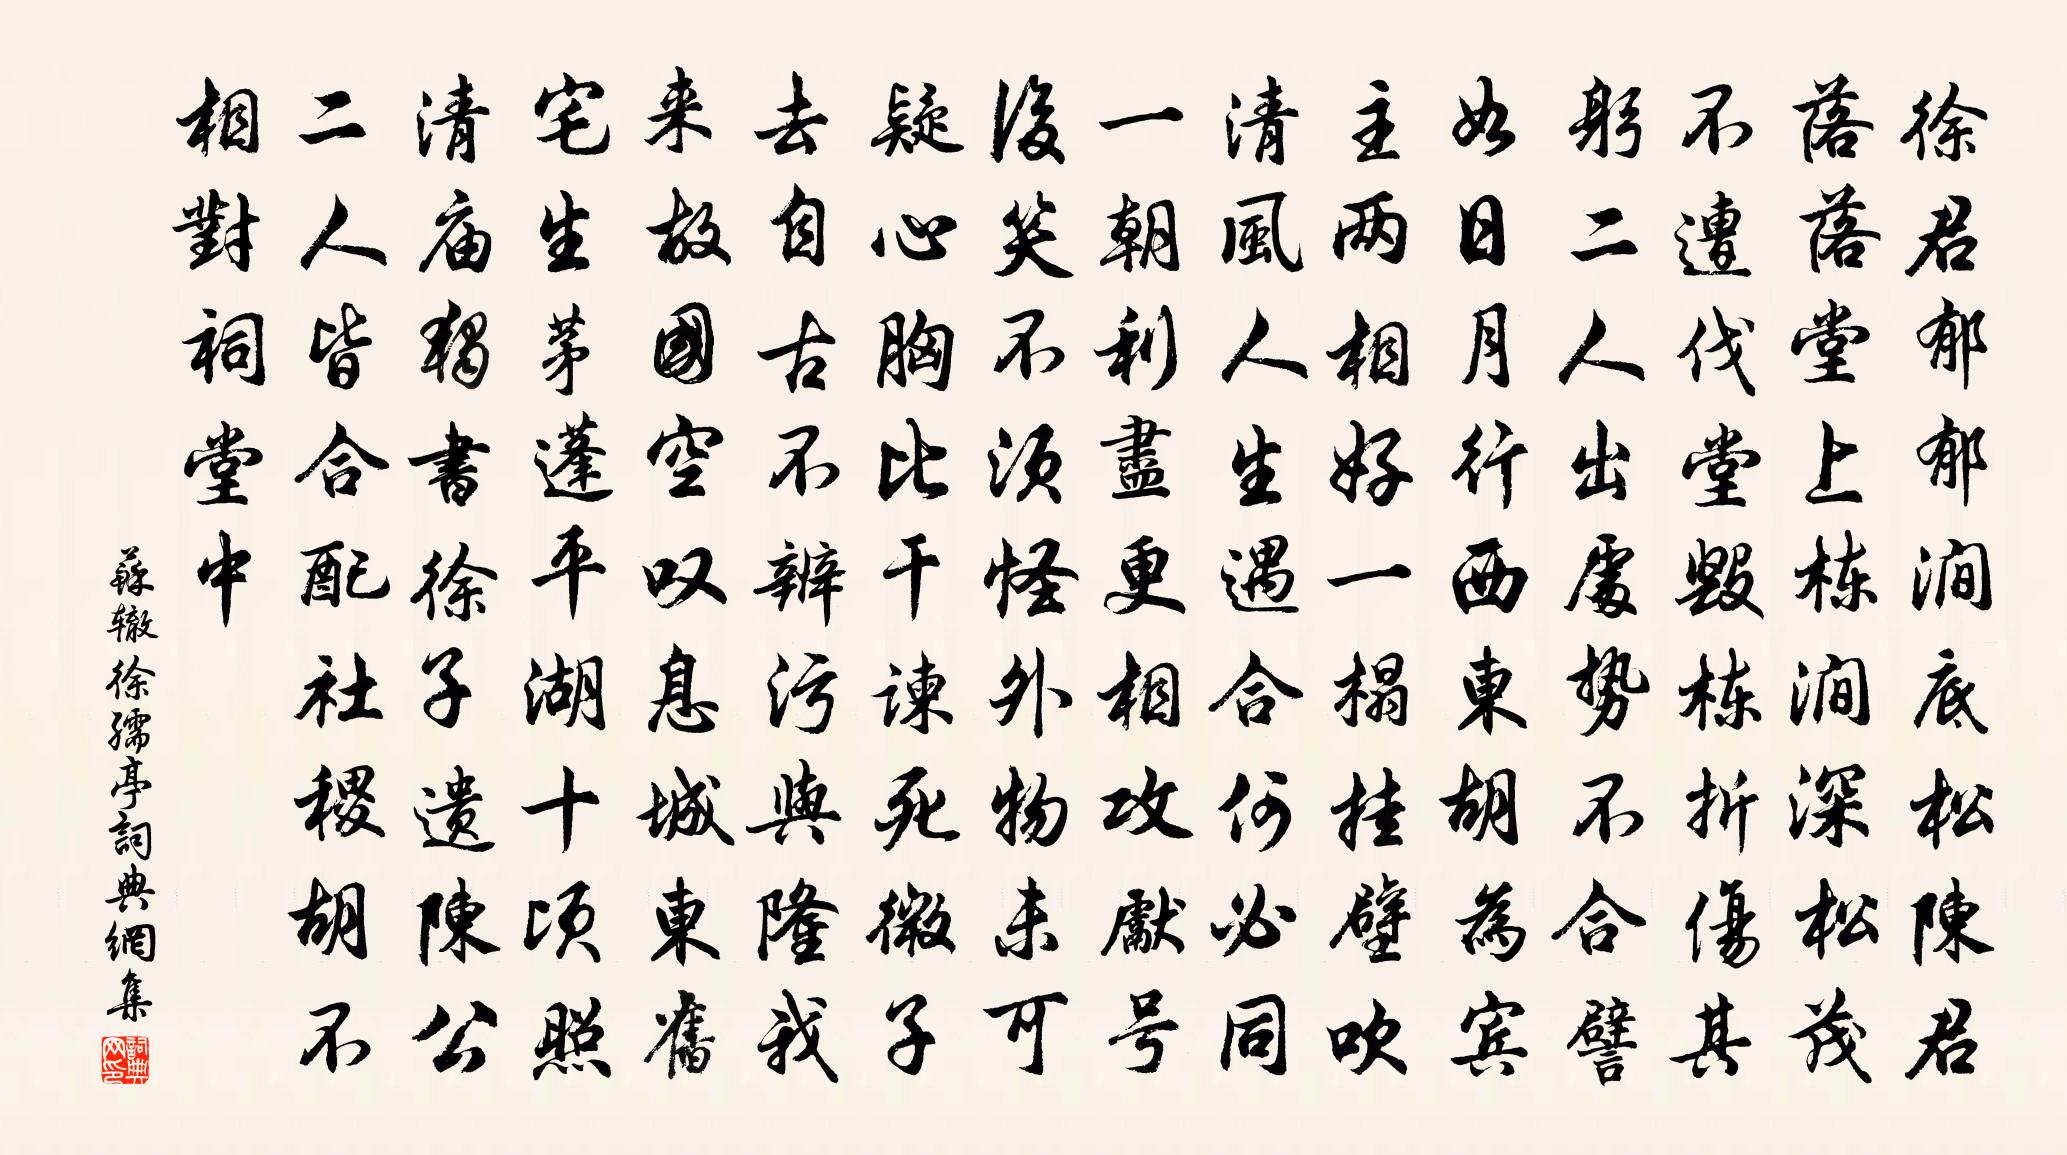 徐君郁郁澗底松陳君
落落堂上栋澗深松茂
不遭伐堂毀栋折傷其
躬二人出處势不合譬
如日月行西東胡為宾
主两相好一榻挂壁吹
清風人生遇合何必同
一朝利盡更相攻獻号
後笑不须怪外物未可
疑心胸比干谏死微子
去自古不辨污與隆我
来故國空叹息城東舊
宅生茅蓬平湖十顷照
清庙獨書徐子遗陳公
二人皆合配社稷胡不
相對祠堂中
蘇辙徐孺亭詞典網集
詞典网印